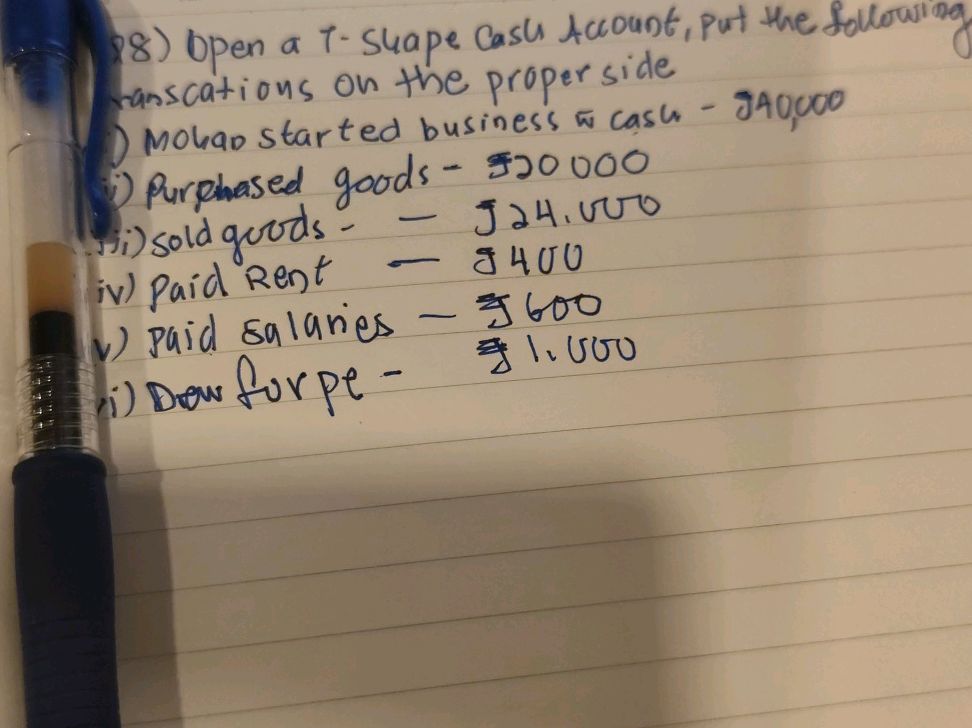 98) Open a T-Shape Cash Account, put the following
transcations on the proper side
i) Mohan started business w cash - ₹40,000
ii) Purchased goods - ₹20000
iii) sold goods - — ₹24.000
iv) paid Rent — ₹400
v) paid salaries — ₹600
vi) Drew for pe - ₹1.000